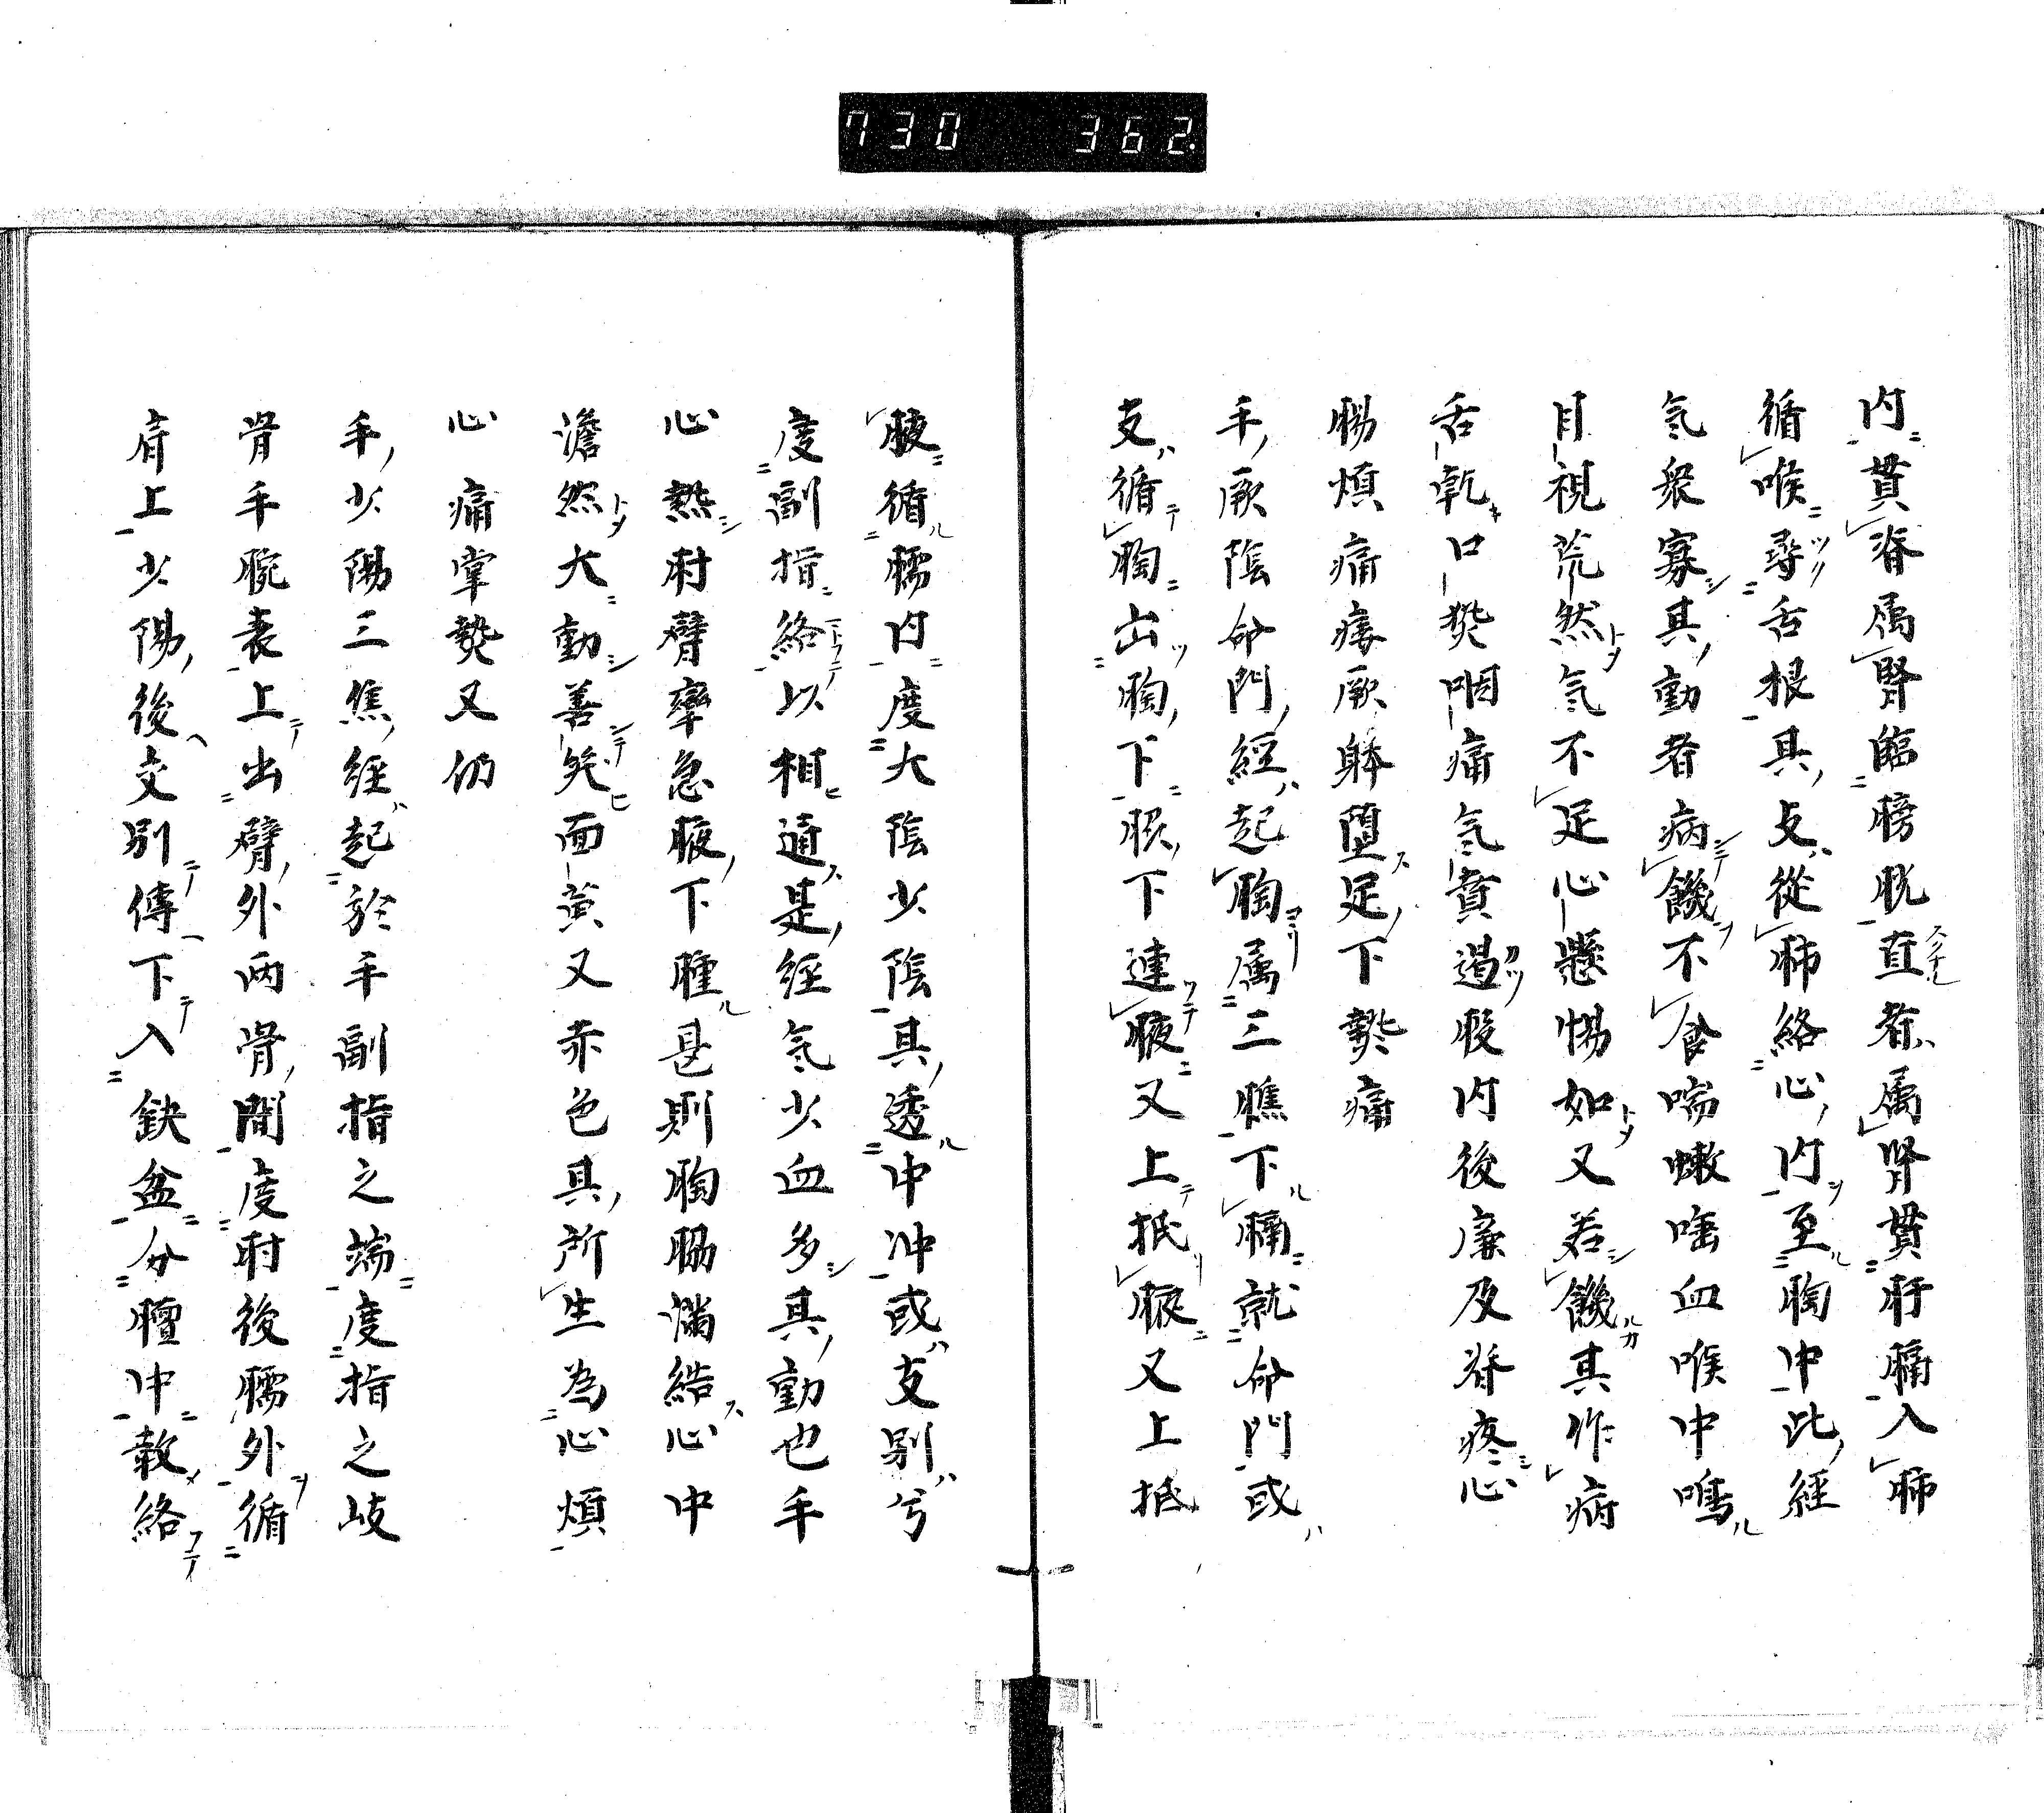 730 362.
内貫脊属腎臨膀胱直者属腎貫肝膈入肺
循喉尋舌根其支從肺絡心内至胸中此經
氣衆寡其動者病饑不食喘嗽唾血喉中鳴
目視荒然氣不足心懸惕如又若饑其作病
舌乾口熱咽痛氣賁遏股内後廉及脊疼心
腸煩痛痿厥躰堕足下熱痛
手厥陰命門經起胸属三膲下膈就命門或
支循胸出胸下腋下連腋又上抵腋又上抵
腋循臑内度大陰少陰其透中冲或支别兮
度副指絡以相通是經氣少血多其動也手
心熱肘臂攣急腋下腫甚則胸脇満結心中
澹然大動善笑面黄又赤色其所生為心煩
心痛掌熱又仍
手少陽三焦經起於手副指之端度指之岐
骨手腕表上出臂外两骨間度肘後臑外循
肩上少陽後交别傳下入鈌盆分膻中散絡